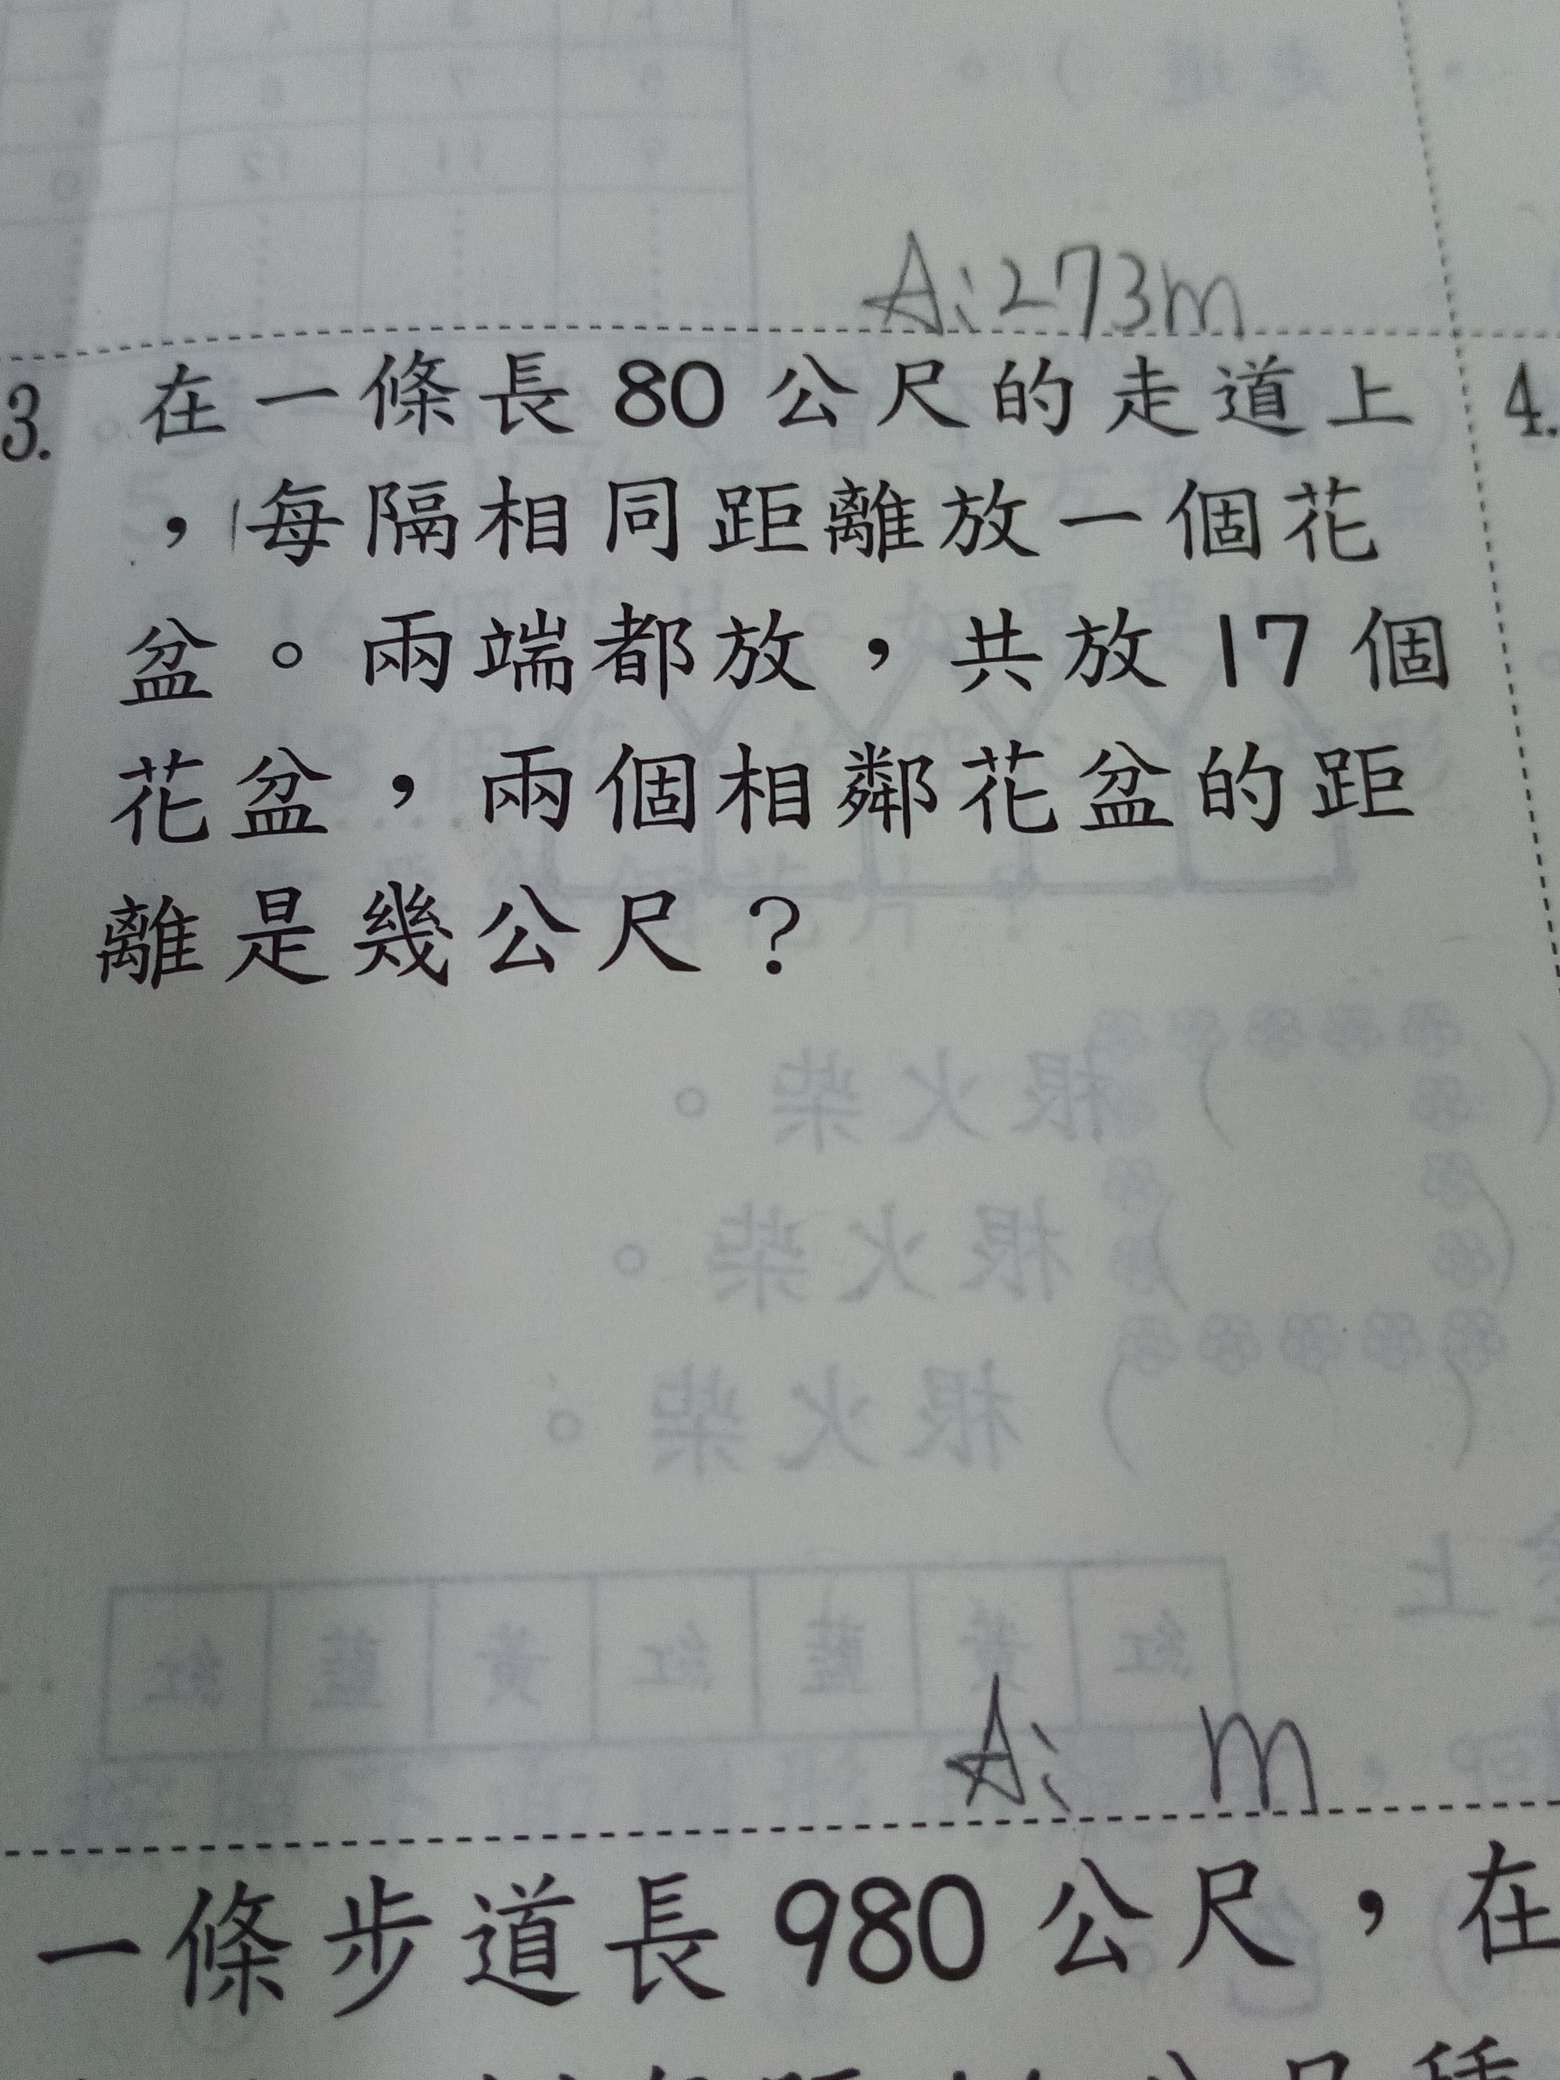 A:273m
3. 在一條長80公尺的走道上
，每隔相同距離放一個花
盆。兩端都放，共放17個
花盆，兩個相鄰花盆的距
離是幾公尺？
4.
A: m
一條步道長980公尺，在